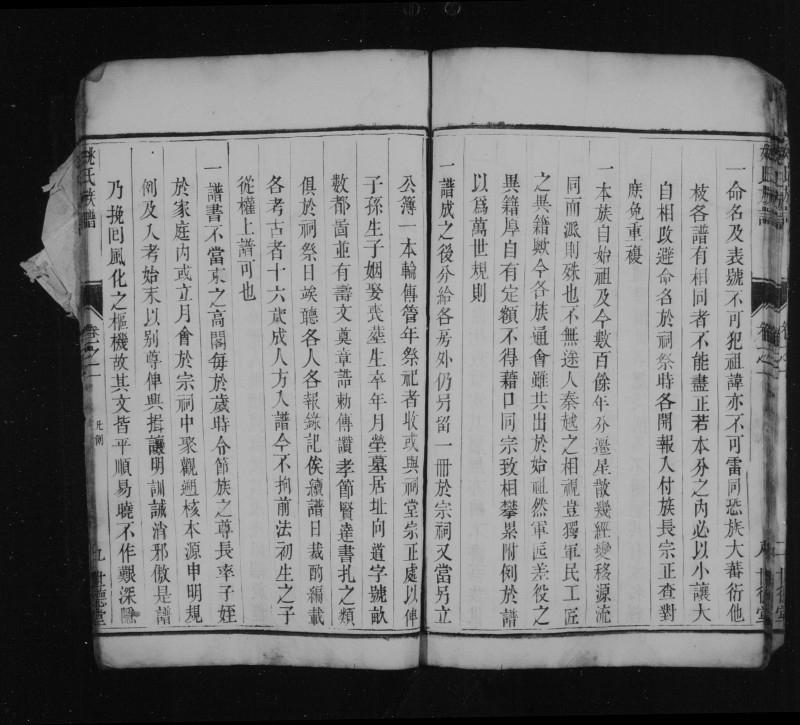 一命名及表號不可犯祖諱亦不可雷同恐族大蕃衍他
枝各譜有相同者不能盡正若本分之內必以小讓大
自相改避命名於祠祭時各開報入付族長宗正查對
庶免重複
一本族自始祖及今數百餘年分遷星散幾經變移源流
同而派則殊也不無迯人秦越之相視豈獨軍民工匠
之異籍歟今各族通會雖共出於始祖然軍匠差役之
異籍厚自有定額不得藉口同宗致相攀累附例於譜
以爲萬世規則
一譜成之後分給各房外仍另留一冊於宗祠又當另立
公簿一本輪傳管年祭祀者收或與祠堂宗正處以俾
子孫生子姻娶喪塟生卒年月塋墓居址向道字號畝
數都啚並有壽文奠章誥勅傳讚孝節賢達書扎之類
俱於祠祭日竢聽各人各報錄記俟續譜日裁酌編載
各考古者十六歲成人方入譜今不拘前法初生之子
從權上譜可也
一譜書不當束之高閣每於歲時令節族之尊長率子姪
於家庭內或立月會於宗祠中聚觀遡核本源申明規
例及人考始末以別尊俾與揖讓明訓誡消邪傲是譜
乃挽囘風化之樞機故其文皆平順易曉不作艱深隱
姚氏族譜
卷之一
凡例
九
世德堂